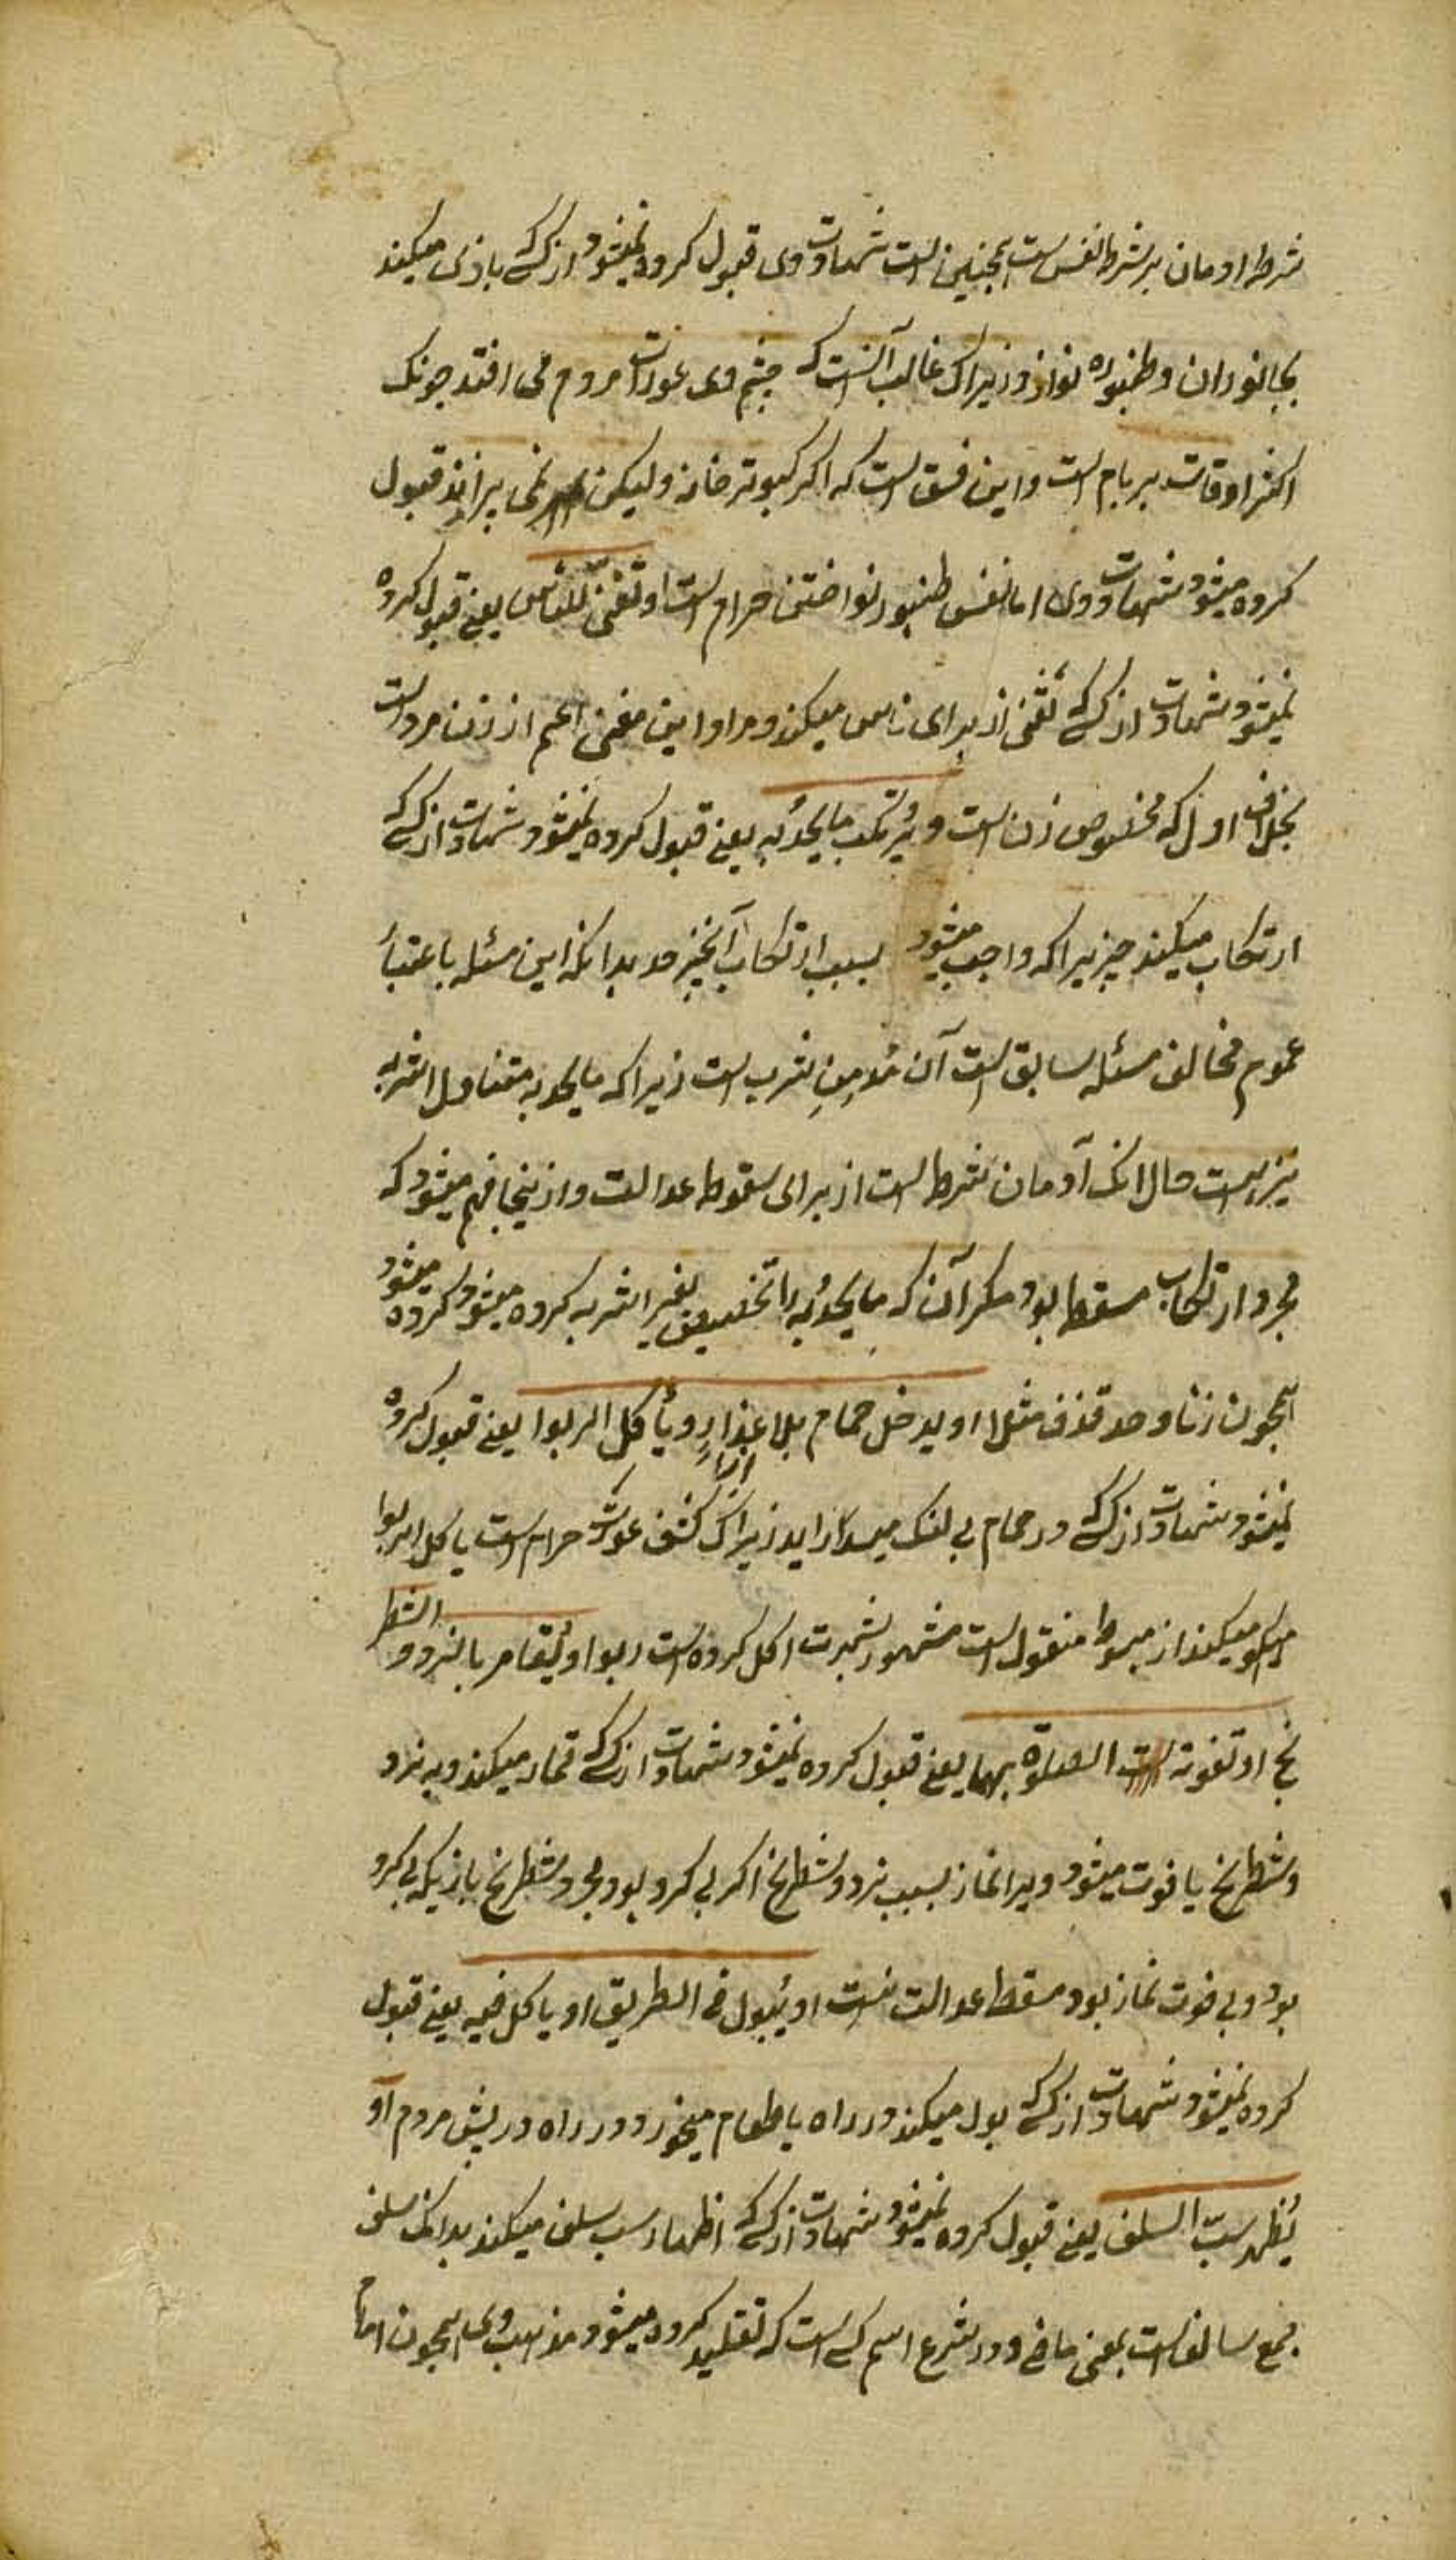 شرط ادمان بر شرط نفس است همچنین است شهادت وی قبول کرده نمیشود از کسی که بازی میکند
بجانوران و طنبوره نوازد زیراک غالب آنست که چشم وی عورات مردم می افتد چونک
اکثر اوقات بر بام است و این فسق است که اکر کبوتر خانه ولیکن نمی پراند قبول
کرده میشود شهادت وی اما نفس طنبور نواختن حرام است او تغنی للناس یعنی قبول کرده
نمیشود شهادت از کسی که تغنی از برای ناس میکند و مراد این مغنی اعم از زن مرد است
بخلاف اول که مخصوص زن است و یرتکب ما یحد به یعنی قبول کرده نمیشود شهادت از کسی که
ارتکاب میکند چیزیرا که واجب میشود بسبب ارتکاب آنچیز حد بدانکه این مسئله باعتبا
عموم مخالف مسئله سابق است آن مدمن شرب است زیرا که ما یحد به متناول اشربه
نیز است حال انک آدمان شرط است از برای سقوط عدالت و ازینجا فهم میشود که
مجرد ارتکاب مسقط بود مکر آن که ما یحد به را تخصیص بغیر اشربه کرده میشود کرده میشود
همچون زنا و حد قذف مثلا او یدخل حمام بلا ازار و یأکل الربوا یعنی قبول کرده
نمیشود شهادت از کسی که در حمام بی لنک میدراید زیراک کشف عورت حرام است یا کل الربوا
میکند از مبسوط منقول است مشهور بشهرت اکل کرده است ربوا او یقامر بالنرد و الشطر
نج او تفوته الصلوة بها یعنی قبول کرده نمیشود شهادت از کسی که قمار میکند و به نرد
و شطرنج یا فوت میشود ویرا نماز بسبب نرد و شطرنج اکر بی کرو بود مجرد شطرنج بازیکه بی کرو
بود و بی فوت نماز بود مسقط عدالت نست او یبول فی الطریق او یاکل فیه یعنی قبول
کرده نمیشود شهادت از کسی که بول میکند در راه یا طعام میخورد در راه در پیش مردم او
یظهر سب السلف یعنی قبول کرده نمیشود شهادت از کسی که اظهار سب سلف میکند بدانک سلف
جمع سالف است بمعنی ماضی و در شرع اسم کسی است که تقلید کرده میشود مذهب وی همچون امام